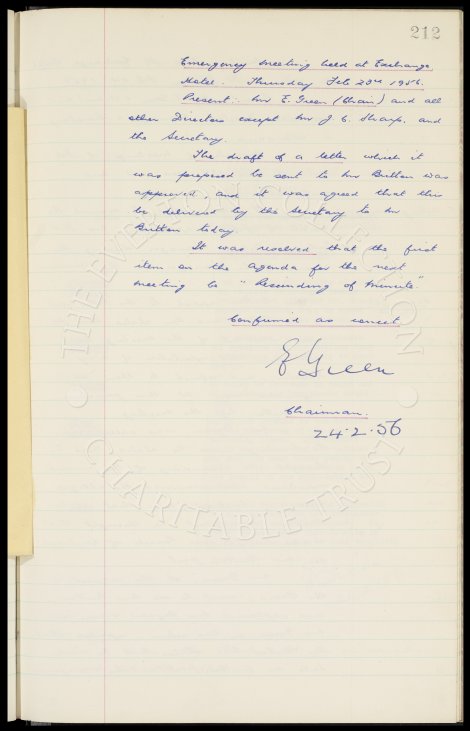 212
Emergency meeting held at Exchange
Hotel. Thursday Feb 23rd 1956.
Present:- Mr E. Green (Chair) and all
other Directors except Mr J C. Sharp. and
the Secretary.
The draft of a letter which it
was proposed to send to Mr Britton was
approved, and it was agreed that this
be delivered by the Secretary to Mr
Britton today.
It was resolved that the first
item on the agenda for the next
meeting be "Rescinding of minute"
Confirmed as correct
E Green
Chairman.
24.2.56
THE EVERTON COLLECTION
CHARITABLE TRUST